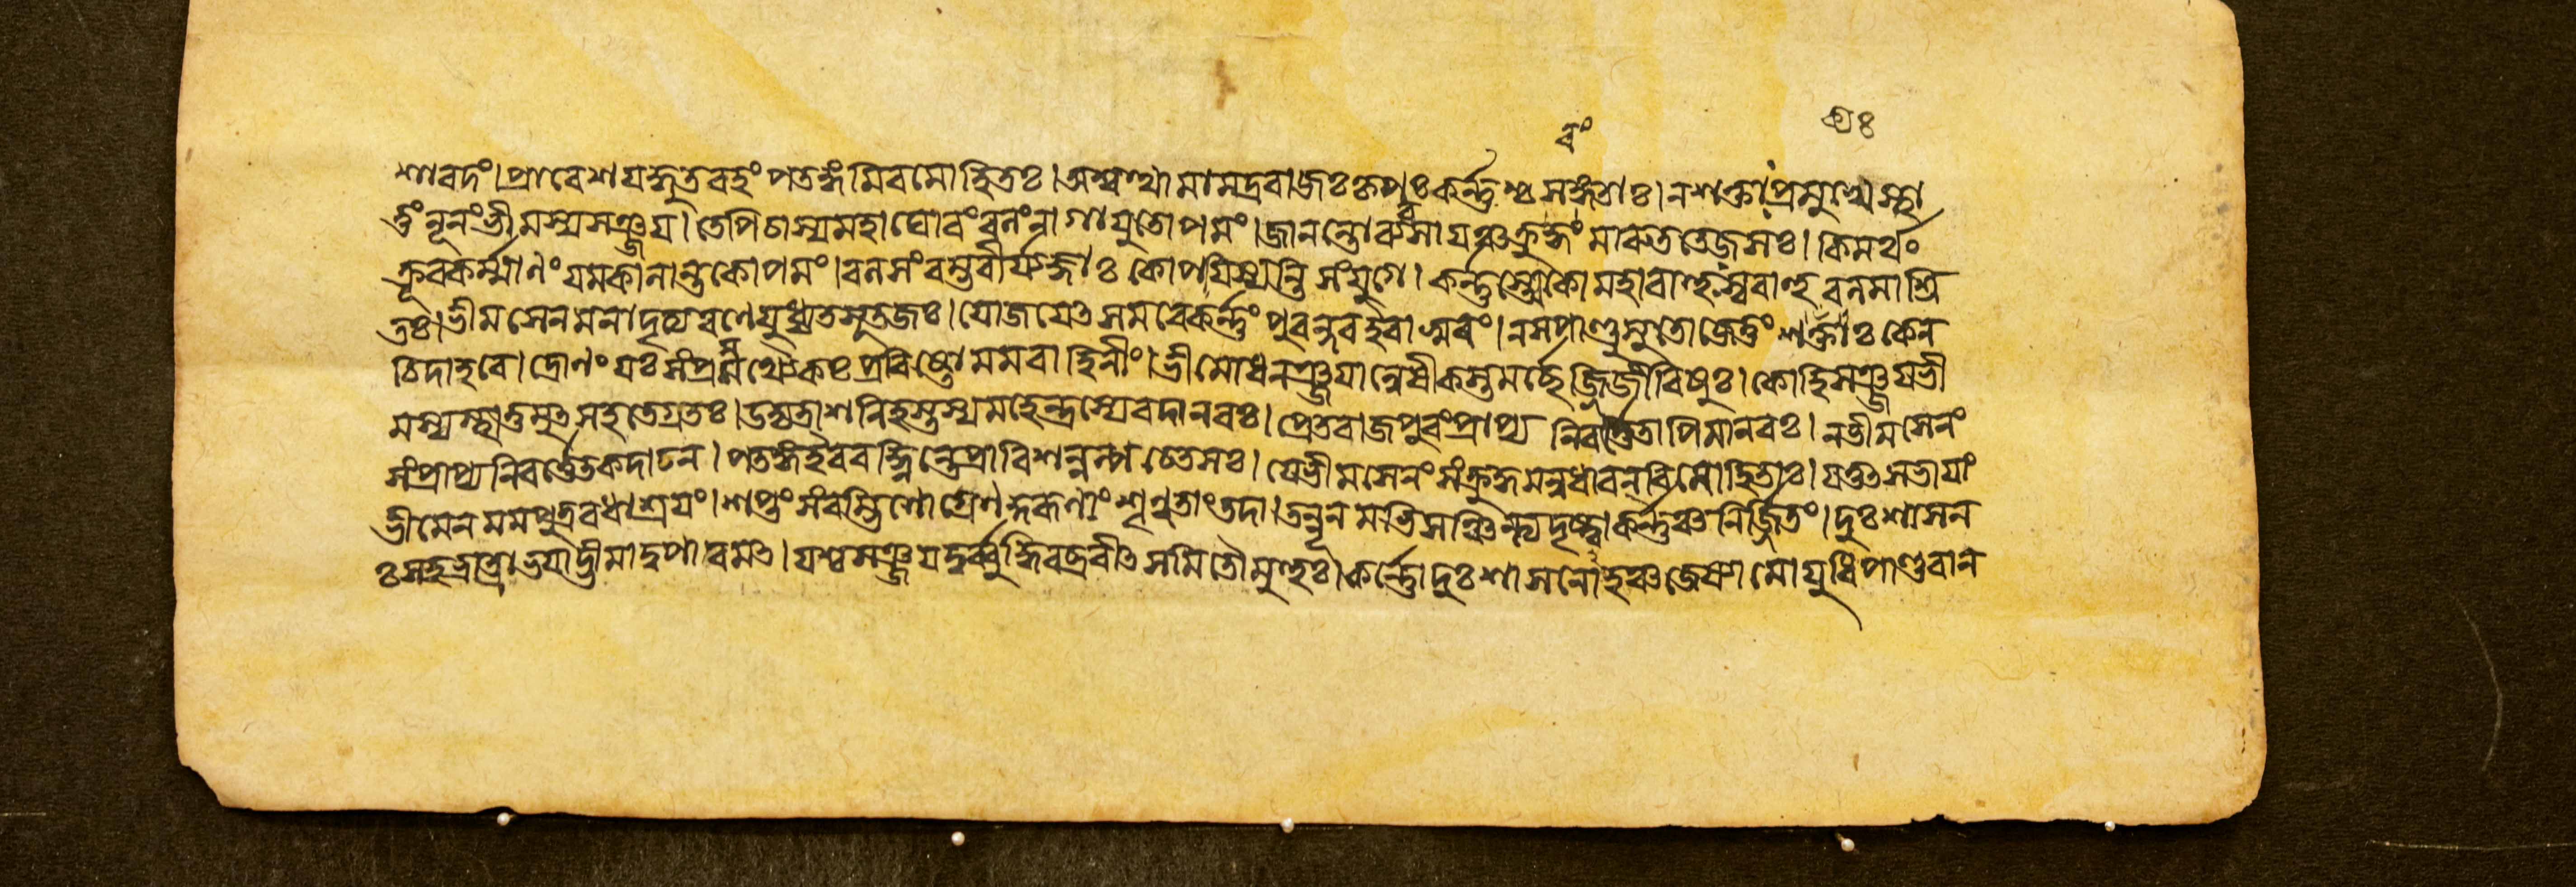 শ্বরদং। প্রাবেশযদ্ধুতবহং পতঙ্গমিবমোহিতঃ। অশ্বত্থামামদ্ররাজঃ কৃপঃকর্ন্নশ্চসঙ্গতাঃ। নশক্তাঃপ্রমুখেস্থা
তুংনূনংভীমস্যসঞ্জয। তেপিচাস্যমহাঘোরংবলংনাগাযুতোপমং। জানন্তোব্যবসাযঞ্চক্রূরংমারুততেজসঃ। কিমর্থং
ক্রূরকর্ম্মাণং যমকালান্তকোপমং। বলসংরম্ভবীর্য্যজ্ঞাঃ কোপযিষ্যন্তি সংযুগে। কর্ন্নস্ত্বেকোমহাবাহুঃস্ববাহুবলমাশ্রি
তঃ। ভীমসেনমনাদৃত্যরণেযুধ্যতসূতজঃ। যোজযেৎসমরেকর্ন্নং পুরন্দরইবাসুরং। নসপাণ্ডুসুতোজেতুং শক্যঃ কেন
চিদাহবে। দ্রোণং যঃসংপ্রমথ্যৈকঃপ্রবিষ্টোমমবাহিনীং। ভীমোধনঞ্জযান্বেষীকস্তমর্চ্ছেজ্জিজীবিষুঃ। কোহিসঞ্জযভী
মস্যস্থাতুমুৎসহতেগ্রতঃ। উদ্যতাশনিহস্তস্যমহেন্দ্রস্যেবদানবঃ। প্রেতরাজপুরংপ্রাপ্য নিবর্ত্তেতাপিমানবঃ। নভীমসেনং
সংপ্রাপ্যনিবর্ত্তেতকদাচন। পতঙ্গাইববহ্নিন্তেপ্রাবিশন্নল্পচেতসঃ। যেভীমসেনংসংক্রুদ্ধমন্বধাবন্বিমোহিতাঃ। যত্তৎসভাযাং
ভীমেনমমপুত্রবধাশ্রযং। শপ্তংসংরম্ভিণোগ্রেণকুরূণাংশৃণ্বতাংতদা। তন্নূনমভিসঞ্চিন্ত্যদৃষ্ট্বাকর্ন্নঞ্চনির্জ্জিতং। দুঃশাসন
ঃসহভ্রাত্রাভযাদ্ভীমাদুপারমৎ। যশ্চসঞ্জযদুর্ব্বুদ্ধিরব্রবীৎসমিতৌমুহুঃ। কর্ন্নোদুঃশাসনোহঞ্চজেষ্যামোযুধিপাণ্ডবান